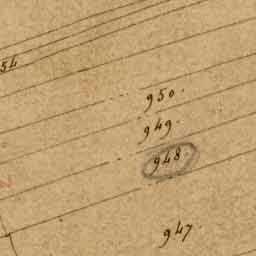 54
950.
949.
948.
947.